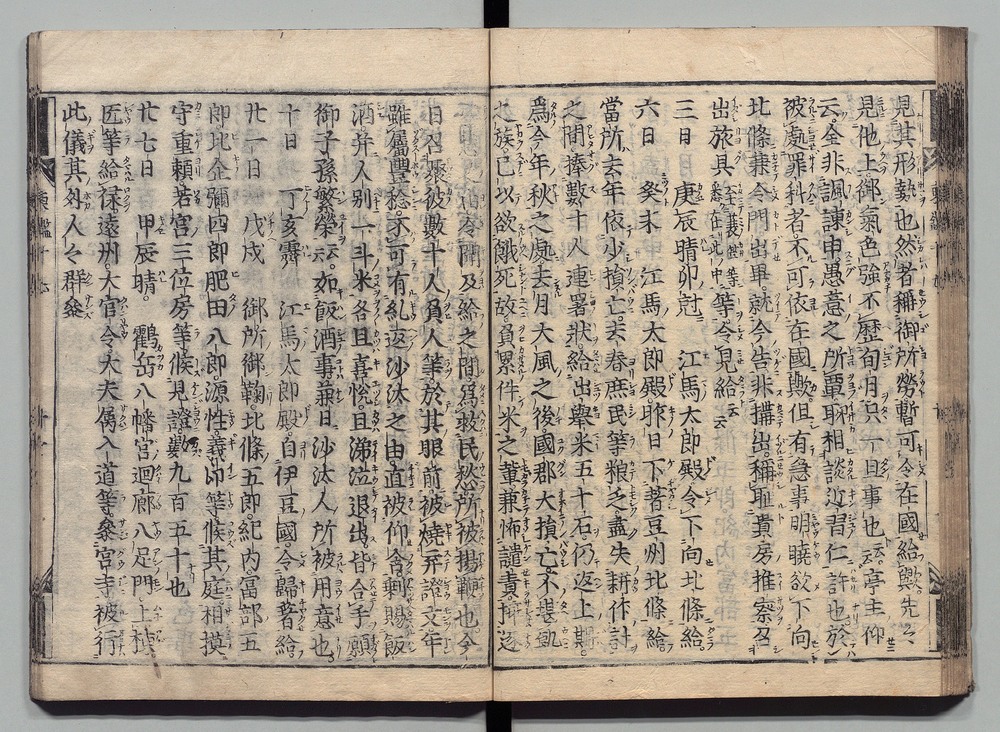 見其形勢也然者稱御所勞暫可令在國給歟先々
見他上御氣色強不歷旬月只一旦事也云云亭主仰
云全非諷諫申愚意之所覃聊相談近習仁許也於
被處罪科者不可依在國歟但有急事明曉欲下向
北條兼令門出畢就今告非搆出稱耻貴房推察召
出旅具至蓑笠等悉在此中等令見給云云
三日 庚辰晴卯尅 江馬太郎殿令下向北條給
六日 癸未 江馬太郎殿昨日下著豆州北條給
當所去年依少損亡去春庶民等粮乏盡失耕作計
之間捧數十人連署狀給出擧米五十石仍返上期
爲今年秋之處去月大風之後國郡大損亡不堪飢
之族已以欲餓死故負累件米之輩兼怖譴責挿逐
電思之由令聞及給之間爲救民愁所被揚鞭也今
日召聚彼數十人負人等於其眼前被燒弃證文年
雖屬豐稔不可有糺返沙汰之由直被仰含剩賜飯
酒并人別一斗米各且喜悅且涕泣退出皆合手願
御子孫繁榮云云如飯酒事兼日沙汰人所被用意也
十日 丁亥霽 江馬太郎殿自伊豆國令歸著給
廿一日 戊戌 御所御鞠北條五郎紀内冨部五
郎比企彌四郎肥田八郎源性義印等候其庭相摸
守重頼若宮三位房等候見證數九百五十也
廿七日 甲辰晴 鶴岳八幡宮廻廊八足門上棟
匠等給祿遠州大官令大夫属入道等參宮寺被行
此儀其外人々群參